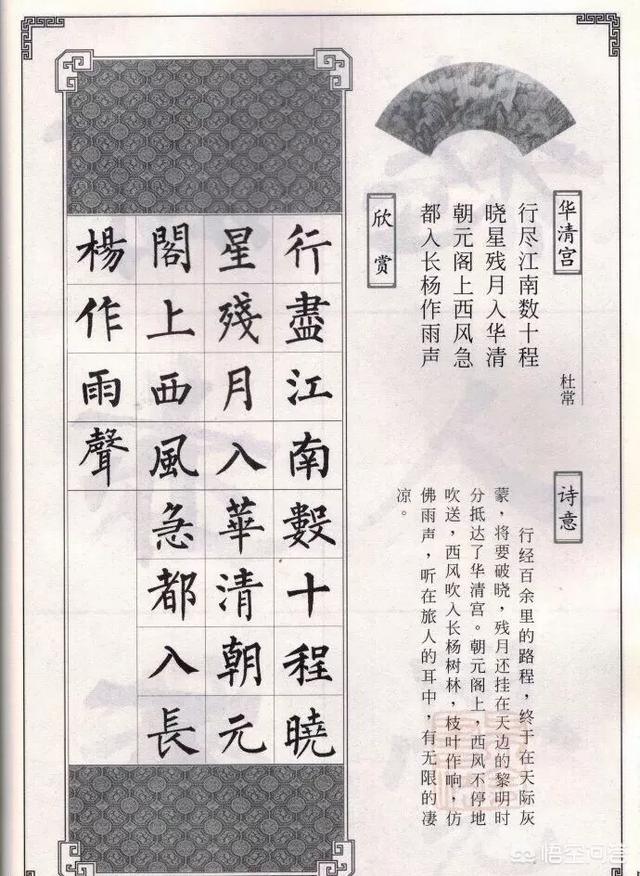 华清宫
行尽江南数十程
晓星残月入华清
朝元阁上西风急
都入长杨作雨声
杜常
诗意
行经百余里的路程，终于在天际灰
蒙，将要破晓，残月还挂在天边的黎明时
分抵达了华清宫。朝元阁上，西风不停地
吹送，西风吹入长杨树林，枝叶作响，仿
佛雨声，听在旅人的耳中，有无限的凄
凉。
欣赏
行盡江南數十程曉
星殘月入華清朝元
閣上西風急都入長
楊作雨聲
悟空问答